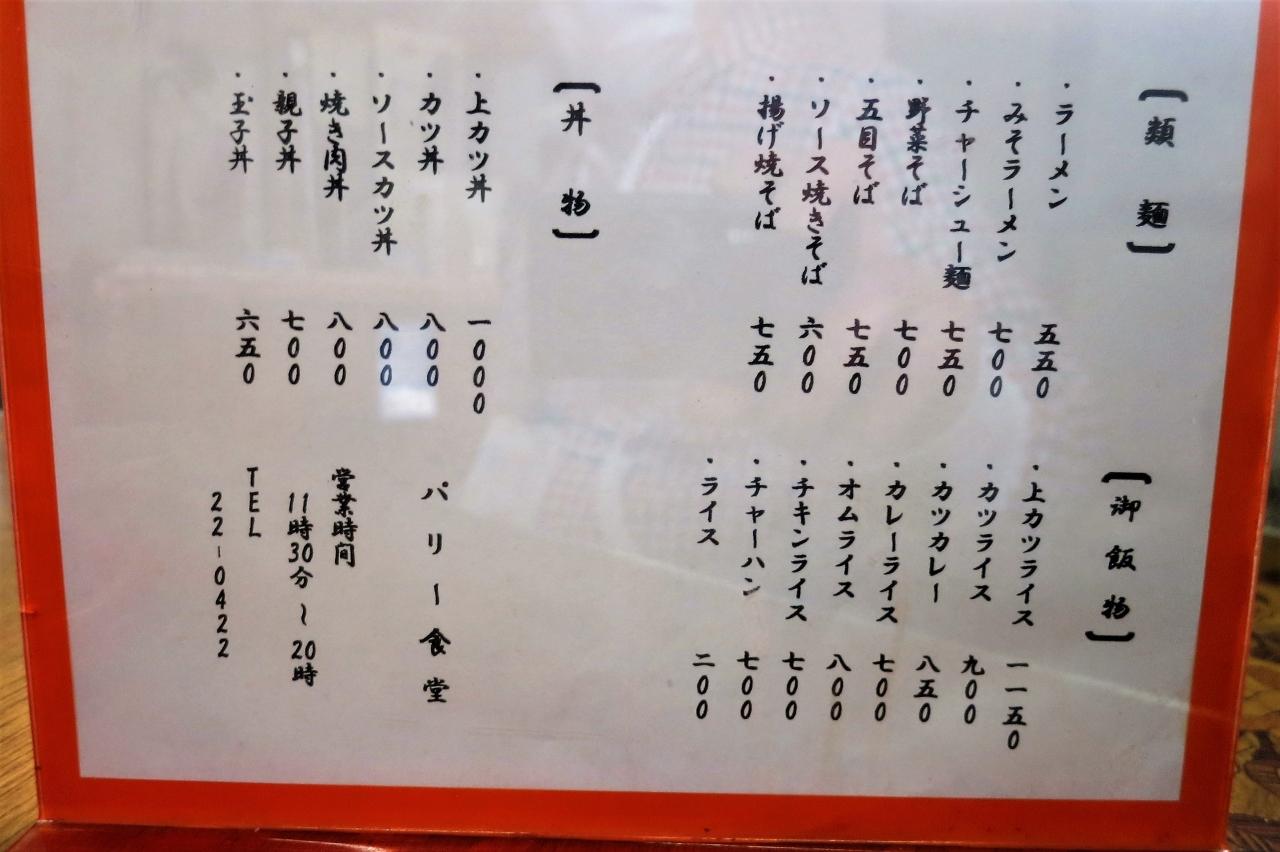 【類 麺】
・ラーメン 五五0
・みそラーメン 七00
・チャーシュー麺 七五0
・野菜そば 七00
・五目そば 七五0
・ソース焼きそば 六00
・揚げ焼そば 七五0
【御飯物】
・上カツライス 一一五0
・カツライス 九00
・カツカレー 八五0
・カレーライス 七00
・オムライス 八00
・チキンライス 七00
・チャーハン 七00
・ライス 二00
【丼 物】
・上カツ丼 一000
・カツ丼 八00
・ソースカツ丼 八00
・焼き肉丼 八00
・親子丼 七00
・玉子丼 六五0
パリー食堂
営業時間
11時30分〜20時
TEL
22-0422